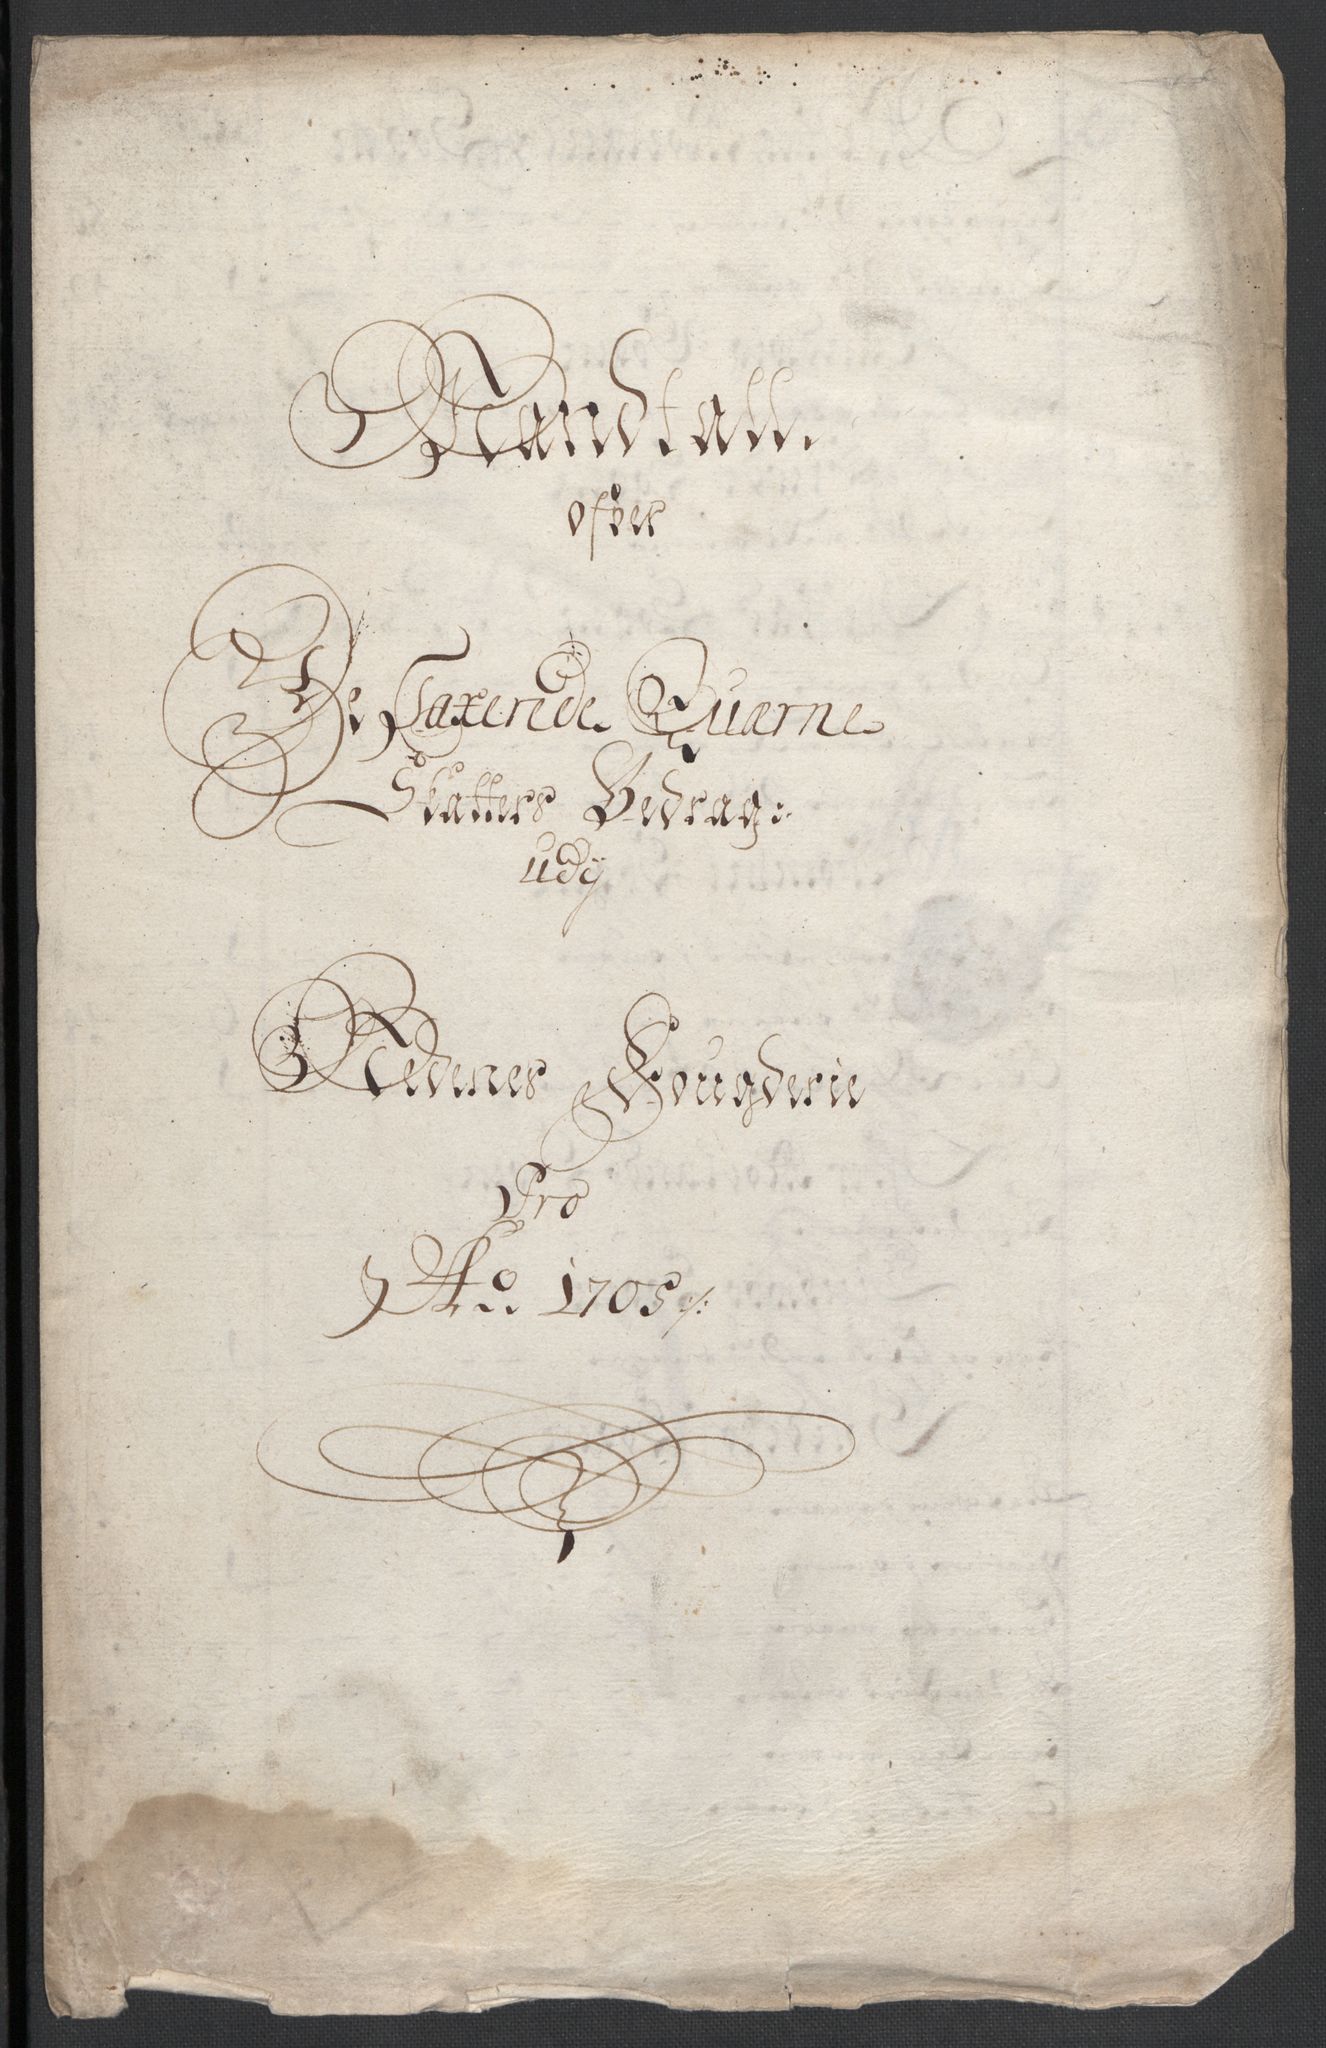 Mandtall
ofver
De Taxerede Quærne
Skatters Bedrag:
udy
Nedenes Fougderie
Pro
Ao. 1705